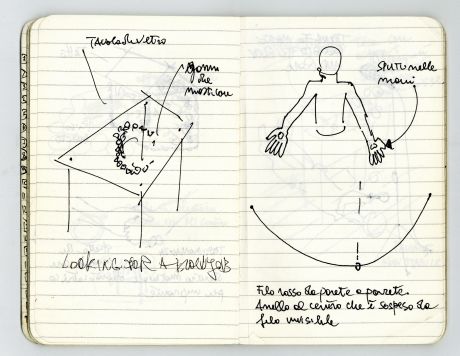 Tavola di vetro
gomma
da
masticare
LOOKING FOR A
SPUTI nelle
mani
Filo rosso da parete a parete.
Anello al centro che è sospeso da
filo invisibile